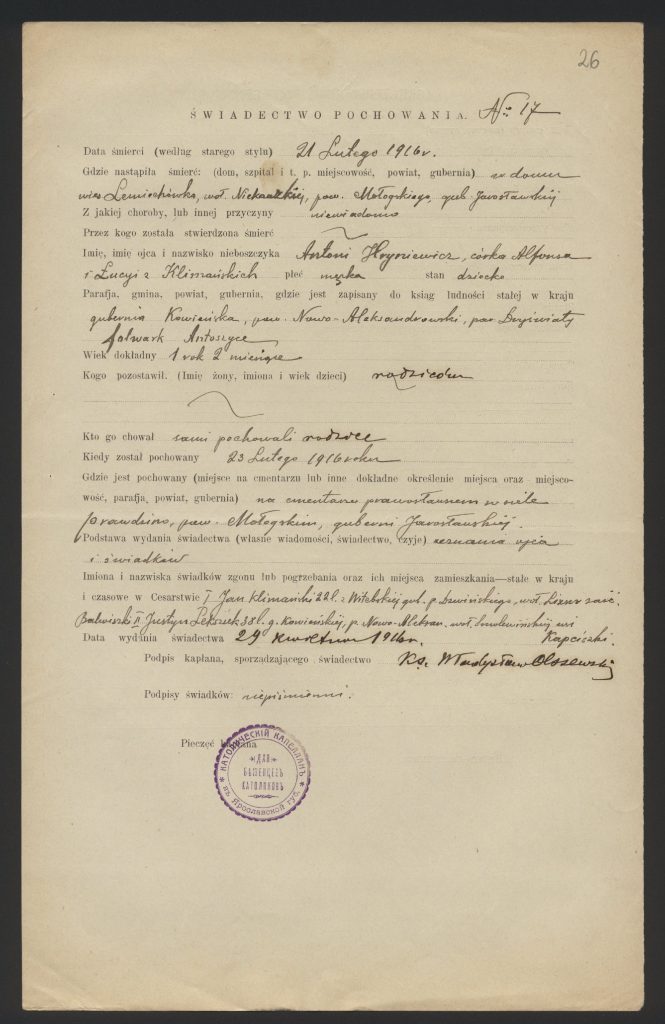 26
ŚWIADECTWO POCHOWANIA. № 17
Data śmierci (według starego stylu) 21 Lutego 1916 r.
Gdzie nastąpiła śmierć: (dom, szpital i t. p. miejscowość, powiat, gubernia) w domu
wieś woł. pow. Mołogskiego, gub. Jarosławskiej
Z jakiej choroby, lub innej przyczyny niewiadomo
Przez kogo została stwierdzona śmierć
Imię, imię ojca i nazwisko nieboszczyka Antoni córka Alfonsa
i Łucyi z Klimańskich płeć męzka stan dziecko
Parafja, gmina, powiat, gubernia, gdzie jest zapisany do ksiąg ludności stałej w kraju
gubernia Kowieńska, pow. Nowo-Aleksandrowski, par. Dryświaty
folwark Antoszyce
Wiek dokładny 1 rok 2 miesiące
Kogo pozostawił. (Imię żony, imiona i wiek dzieci) rodziców
Kto go chował sami pochowali rodzice
Kiedy został pochowany 23 Lutego 1916 roku
Gdzie jest pochowany (miejsce na cmentarzu lub inne dokładne określenie miejsca oraz miejsco-
wość, parafja, powiat, gubernia) na cmentarzu prawosławnem w siele
Prawdino, pow. Mołogskim, guberni Jarosławskiej.
Podstawa wydania świadectwa (własne wiadomości, świadectwo, czyje) zeznania ojca
i świadków
Imiona i nazwiska świadków zgonu lub pogrzebania oraz ich miejsca zamieszkania—stałe w kraju
i czasowe w Cesarstwie I Jan Klimański 22 l. z Witebskiej gub. p. Dzwińskiego, woł.
II Justyn 38 l. g. Kowieńskiej, p. Nowo-Aleksan. woł. wsi
Data wydania świadectwa 29 kwietnia 1916 r. Kapciszki.
Podpis kapłana, sporządzającego świadectwo Ks. Władysław Olszewski
Podpisy świadków: niepiśmienni.
Pieczęć kapłana
КАТОЛИЧЕСКІЙ КАПЕЛЛАНЪ
ДЛЯ
БѢЖЕНЦЕВЪ
КАТОЛИКОВЪ
въ Ярославской губ.